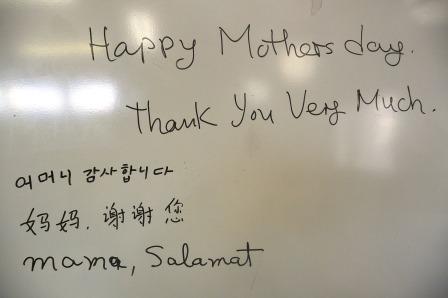 Happy Mothers day.
Thank You Very Much.
어머니 감사합니다
妈妈, 谢谢您
mama, Salamat